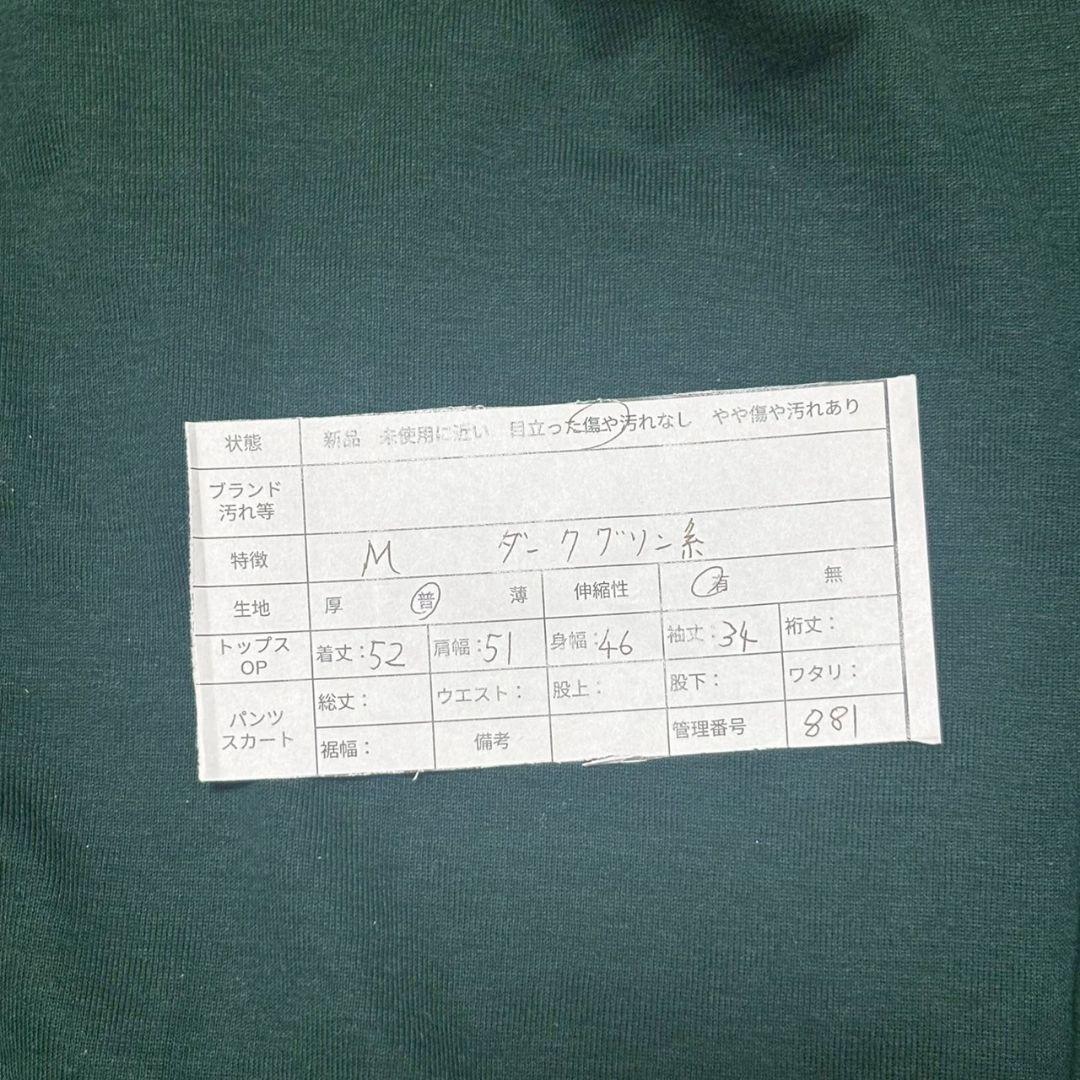 状態 新品 未使用に近い 目立った傷や汚れなし やや傷や汚れあり
ブランド
汚れ等
特徴 M ダークグリン系
生地 厚 普 薄 伸縮性 有 無
トップス
OP 着丈：52 肩幅：51 身幅：46 袖丈：34 裄丈：
パンツ
スカート
総丈： ウエスト： 股上： 股下： ワタリ：
裾幅： 備考 管理番号 881